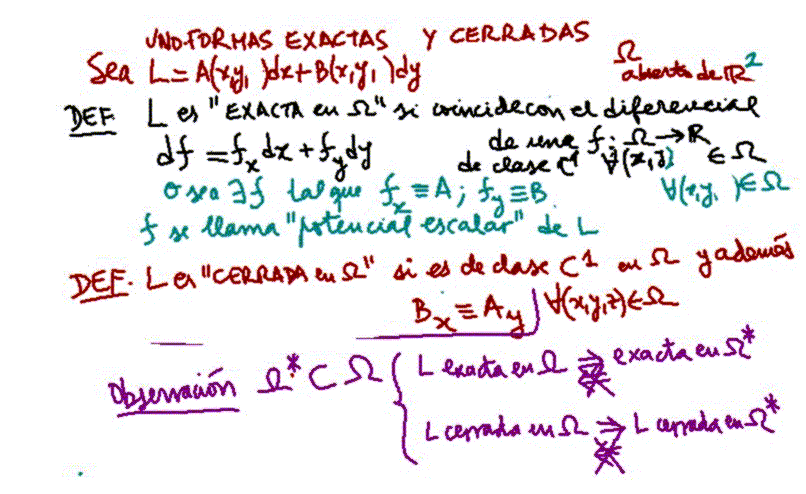 UNO-FORMAS EXACTAS Y CERRADAS
Sea L = A(x,y, )dx + B(x,y, )dy Ω abierto de ℝ²
DEF. L es "EXACTA en Ω" si coincide con el diferencial
df = f_x dx + f_y dy de una f: Ω → ℝ
de clase C¹ ∀(x,y) ∈ Ω
o sea ∃f tal que f_x ≡ A ; f_y ≡ B ∀(x,y, ) ∈ Ω
f se llama "potencial escalar" de L
DEF. L es "CERRADA en Ω" si es de clase C¹ en Ω y además
B_x ≡ A_y ∀(x,y,z) ∈ Ω
Observación Ω* ⊂ Ω { L exacta en Ω ⇒ exacta en Ω*
L cerrada en Ω ⇒ L cerrada en Ω*